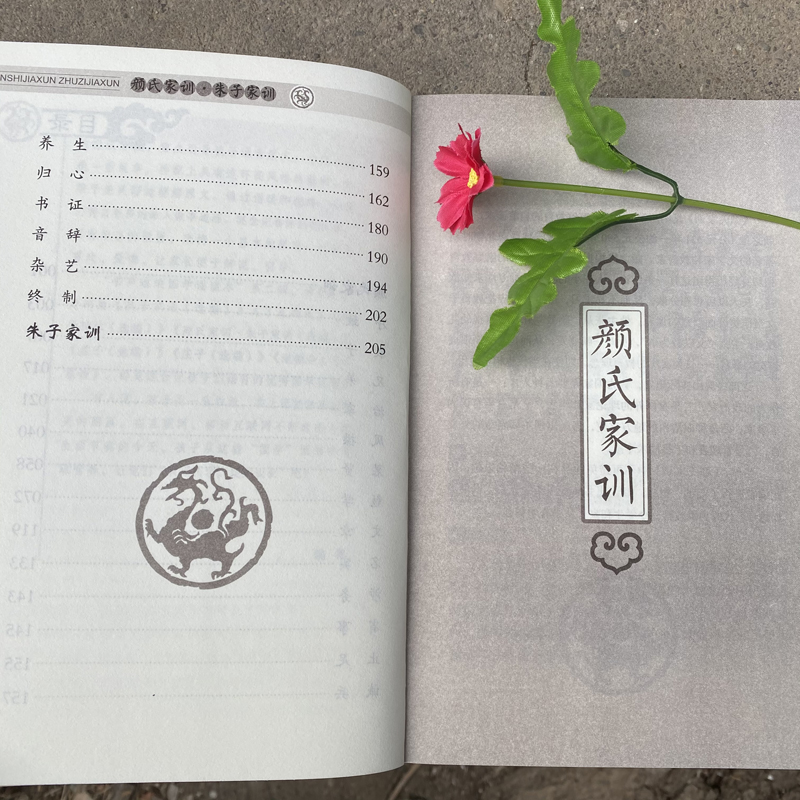 NSHIJIAXUN ZHUZIJIAXUN 颜氏家训·朱子家训
养 生 159
归 心 162
书 证 180
音 辞 190
杂 艺 194
终 制 202
朱子家训 205
颜氏家训